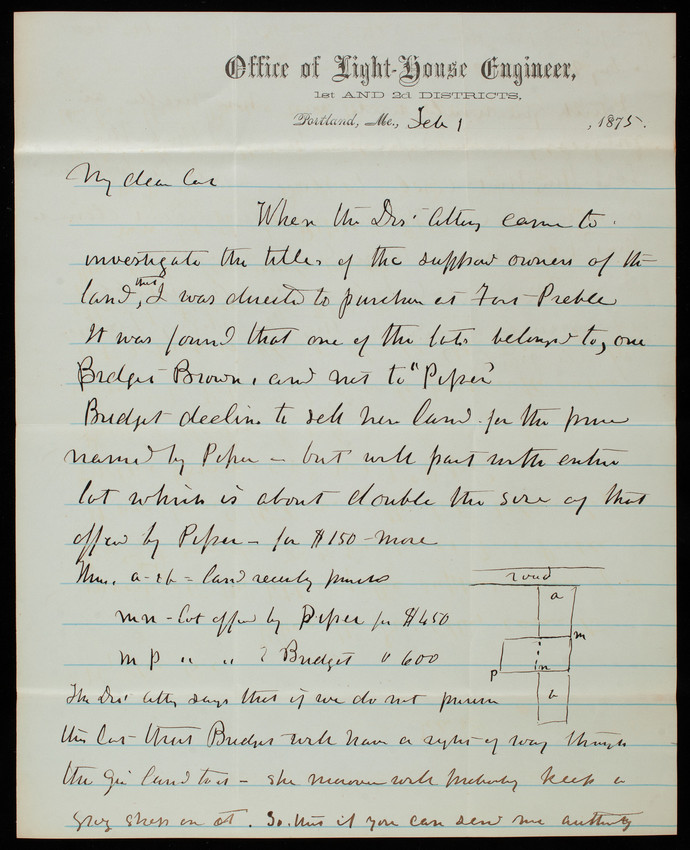 Office of Light-House Engineer,
1st AND 2d DISTRICTS,
Portland, Me., Feb 1, 1875.
My dear Cas
When the Dis' Atty came to
investigate the titles of the suppose owners of the
land, that I was directed to purchase at Fort Preble
It was found that one of the lots belonged to, one
Bridget Brown, and not to "Piper"
Bridget declines to sell her land for the price
named by Piper - but will part with entire
lot which is about double the size of that
offered by Piper - for $150 - more
Thus, a - & b = land recently purchas
m n - lot offd by Piper for $450
m p " " Bridget " 600
road
a
m
n
p
b
The Dis' Atty says that if we do not purchase
this lot that Bridget will have a right of way through
the Gov land to it - she moreover will probably keep a
grog shop on it. So, that if you can send me authority